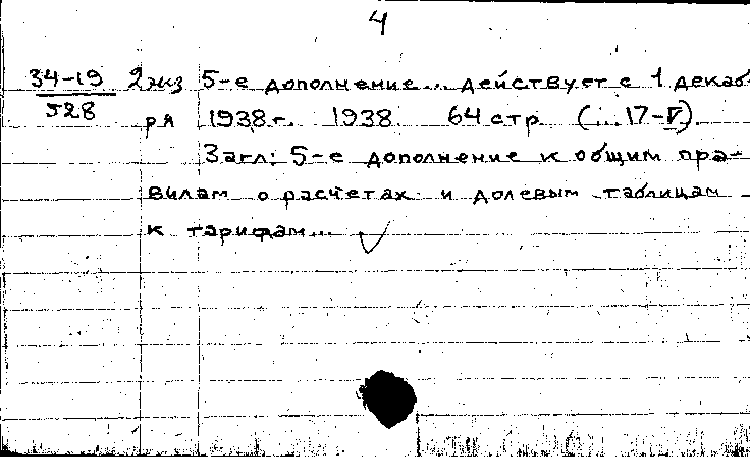 4
34-19 2 экз 5-е дополнение... действует с 1 декаб-
528 ря 1938 г. 1938 64 стр (...17-V).
Загл: 5-е дополнение к общим пра-
вилам о расчетах и долевым таблицам
к тарифам...